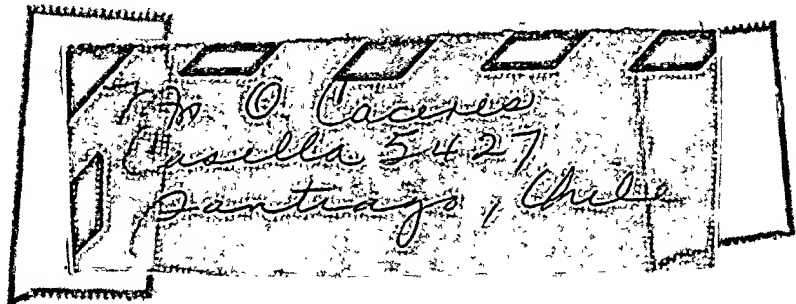 M O Caceres
Casella 5427
Santiago, Chile